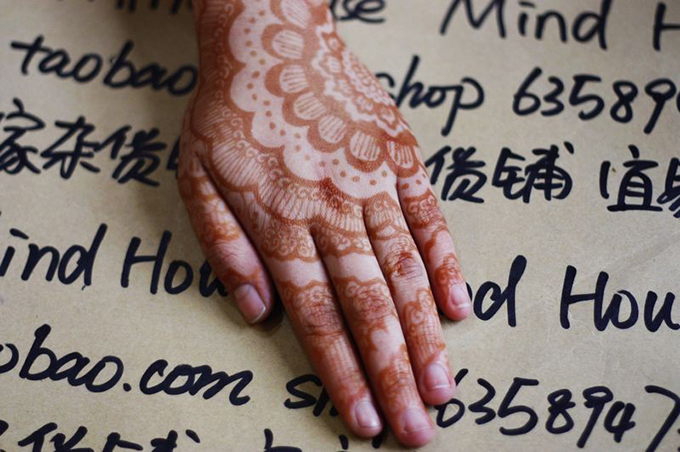 se Mind H
taobao hop 63589
家杂货 货铺 宜
ind Hou d Hou
obao.com 6358947